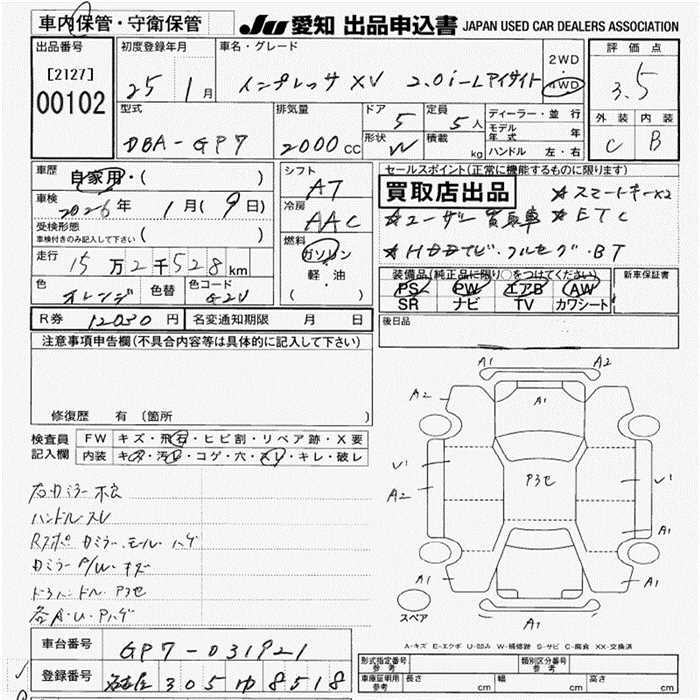 車内保管・守衛保管
JU 愛知 出品申込書 JAPAN USED CAR DEALERS ASSOCIATION
出品番号
[2127]
00102
初度登録年月
25 1月
車名・グレード
インプレッサ XV 2.0i-L アイサイト
2WD
4WD
評価点
3.5
外装 内装
C B
型式
DBA-GP7
排気量
2000 CC
ドア
5
定員
5人
形状
W
積載
kg
ディーラー・並行
モデル年式 年
ハンドル 左・右
車歴
自家用・( )
車検
2026年 1月(9日)
受検形態
車検付きのみ記入して下さい ( )
走行
15万2千528km
色
オレンジ
色替
色コード
G2U
シフト
AT
冷房
AAC
燃料
ガソリン
軽・油
( )
セールスポイント(正常に機能するものに限ります)
買取店出品
★スマートキーx2
★ユーザー買取車 ★ETC
★HDDナビ・フルセグ・BT
装備品(純正品に限り○をつけてください)
PS PW エアB AW
SR ナビ TV カワシート
新車保証書
後日品
R券 12030円
名変通知期限 月 日
注意事項申告欄(不具合内容等は具体的に記入して下さい)
修復歴 有(箇所 )
検査員記入欄
FW キズ・飛石・ヒビ割・リペア跡・X要
内装 キズ・汚レ・コゲ・穴・スレ・キレ・破レ
右カミラー不良
ハンドルスレ
Rスポ カミラー モール ハゲ
カミラー P/W キズ
ドアハンドル P3セ
各A・U・Pハゲ
A1 A2
A2 A1
V1 P3セ V1
A2
A1
A1 A1
A1 A1
スペア
A-キズ E-エクボ U-凹み W-補修跡 S-サビ C-腐食 XX-交換済
車台番号
GP7-031921
登録番号
名古屋 305 ゆ 8518
型式指定番号 参考
類別区分番号 参考
車庫証明用 参考
長さ cm
幅 cm
高さ cm